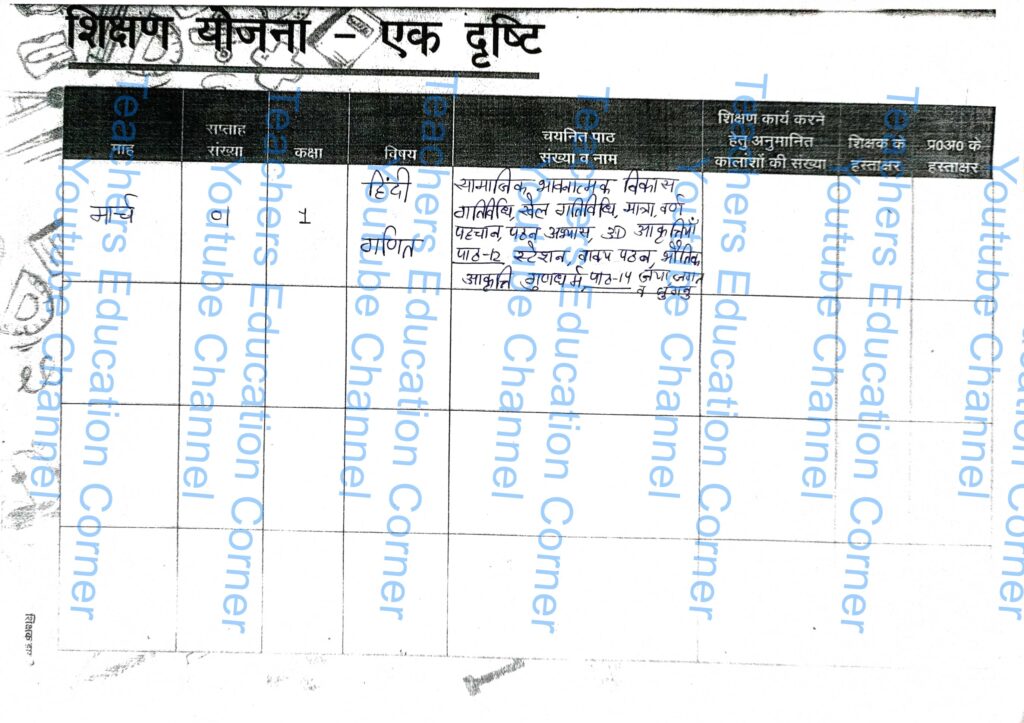 शिक्षण योजना - एक दृष्टि
माह
सप्ताह
संख्या
कक्षा
विषय
चयनित पाठ
संख्या व नाम
शिक्षण कार्य करने
हेतु अनुमानित
कालांशों की संख्या
शिक्षक के
हस्ताक्षर
प्र0अ0 के
हस्ताक्षर
मार्च
01
1
हिंदी
गणित
सामाजिक, भावनात्मक विकास
गतिविधि, खेल गतिविधि, मात्रा, वर्ण
पहचान, पठन अभ्यास, 3D आकृतियाँ
पाठ-12 स्टेशन, वाक्य पठन, भौतिक
आकृति गुणधर्म, पाठ-14
व
Teachers Education Corner
Youtube Channel
Teachers Education Corner
Youtube Channel
Teachers Education Corner
Youtube Channel
Teachers Education Corner
Youtube Channel
Teachers Education Corner
Youtube Channel
Teachers Education Corner
Youtube Channel